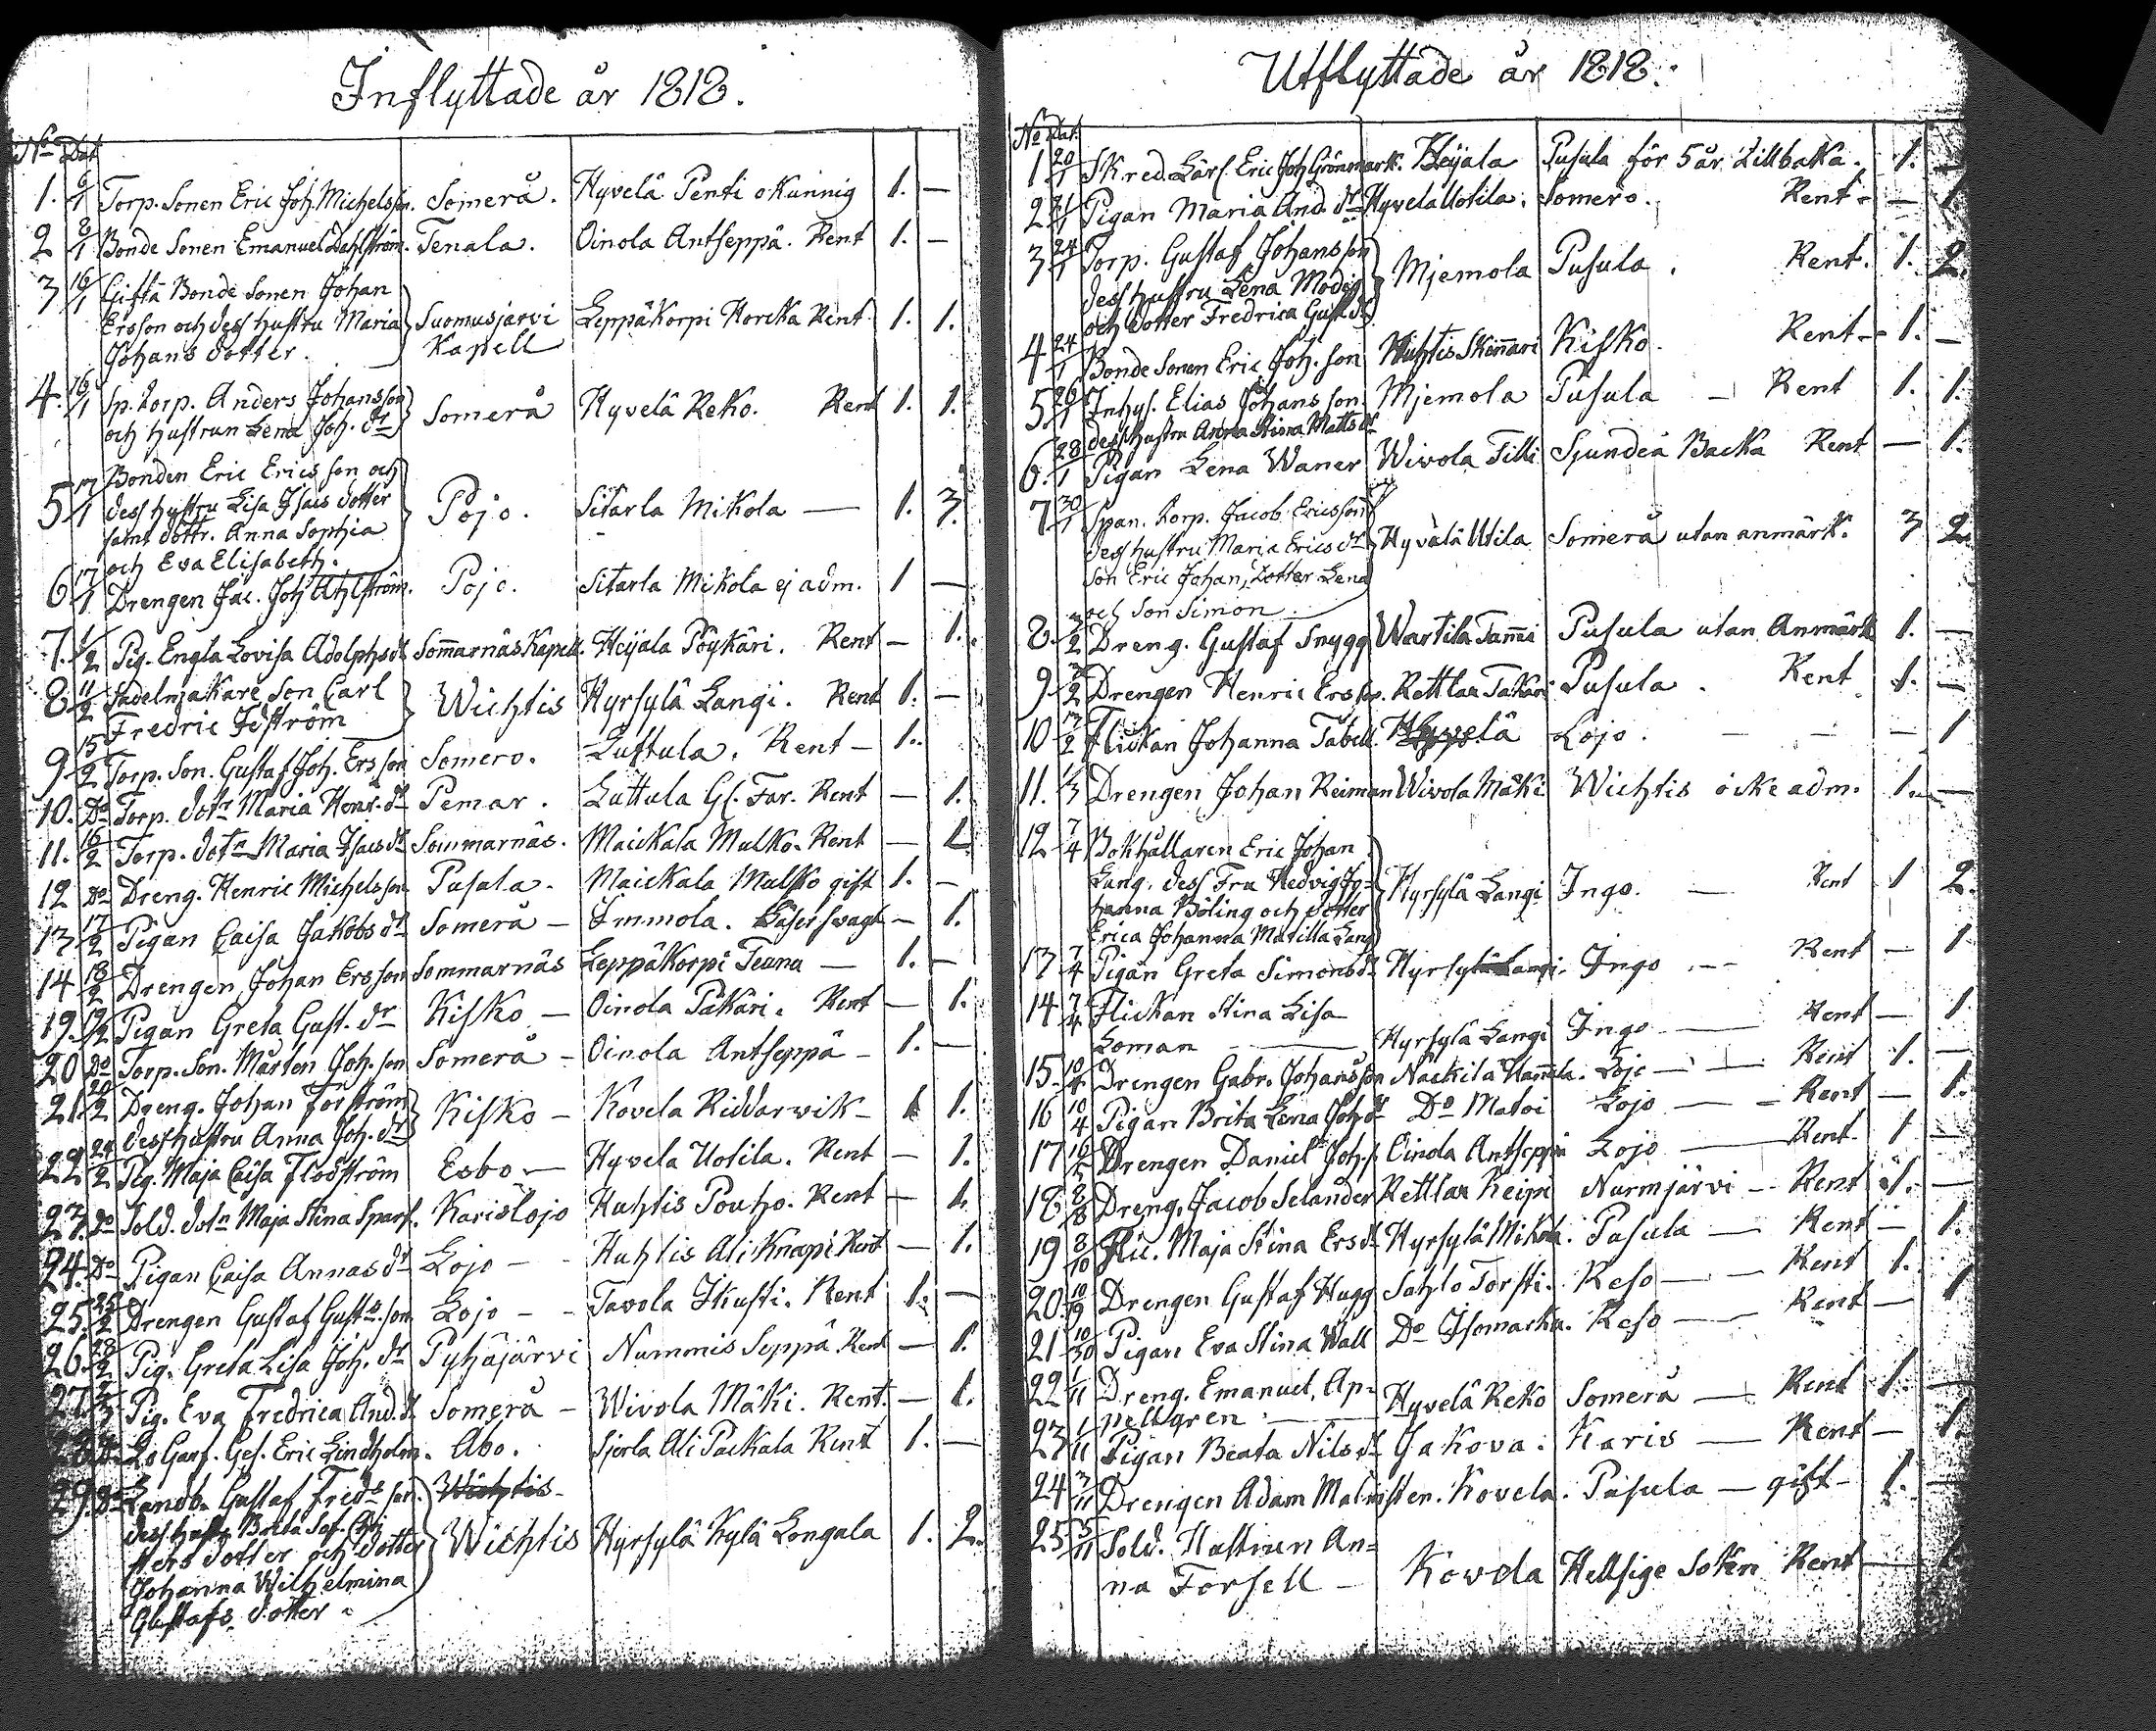 Inflyttade år 1818.
No Dat
1. 6/1 Torp. Sonen Eric Joh. Michelsson. Somerå. Hyvelä Penti okunnig 1. —
2 8/1 Bonde Sonen Emanuel Dahlström. Tenala. Oinola Antseppä. Rent 1. —
3 16/1 Gifta Bonde Sonen Johan
Ersson och dess hustru Maria Suomusjärvi Leppäkorpi Horcka Rent 1. 1.
Johans dotter. Kapell
4. 16/1 Sp. torp. Anders Johansson
och hustrun Lena Joh. dr Somerå Hyvelä Reko. Rent 1. 1.
5 17/1 Bonden Eric Ericsson och
dess hustru Lisa Isacs dotter Pojo. Sitarla Mikola — 1. 3.
samt dottr. Anna Sophia
och Eva Elisabeth.
6 17/1 Drengen Jac. Joh Ahlström. Pojo. Sitarla Mikola ej adm. 1 —
7. 1/2 Pig. Engla Lovisa Adolphs dr Sommarnäs Kapell. Heijala Pöykäri. Rent — 1.
8. 11/2 Sadelmakare Son Carl
Fredric Idström Wichtis Hyrsylä Langi. Rent 1. —
9 15/2 Torp. Son. Gustaf Joh. Ersson Somero. Luttula. Rent — 1.
10. Do Torp. dotr Maria Henr. dr Pemar. Luttula Gl. Far. Rent — 1.
11. 16/2 Torp. dotr Maria Isacs dr Sommarnäs. Maickala Mulko. Rent — 1.
12 Do Dreng. Henric Michelsson Pusula. Maickala Mulko gift 1. —
13 17/2 Pigan Caisa Jakobs dr Somerå — Immola. Läser svagt — 1.
14 18/2 Drengen Johan Ersson Sommarnäs Leppäkorpi Teunu — 1. —
19. 19/2 Pigan Greta Gust. dr Kisko — Oinola Päkäri. Rent — 1.
20 Do Torp. Son. Mårten Joh. son Somerå — Oinola Antseppä — 1. —
21. 20/2 Dreng. Johan Forström
dess hustru Anna Joh. dr Kisko — Kovela Riddarwik — 1 1.
22 24/2 Pig. Maja Caisa Flodström Esbo — Hyvela Uotila. Rent — 1.
23. Do Sold. dotr Maja Stina Sparf. Karislojo Huhtis Pouho. Rent — 1.
24. Do Pigan Caisa Annas dr Lojo — Huhtis Ali Knapi Rent — 1.
25. 25/2 Drengen Gustaf Gusts. son Lojo — Tavola Ikusti. Rent 1. —
26. 28/2 Pig. Greta Lisa Joh. dr Pyhäjärvi Nummis Seppä Rent — 1.
27 Pig. Eva Fredrica And. dr Somerå — Wivola Mäki. Rent. — 1.
Garf. Ges. Eric Lindholm. Åbo. Sjorla Ali Packala Rent 1. —
29. Landb. Gustaf Freds son. Wichtis
dess hustr Brita Sof.
sters dotter och dotter Wichtis Hyrsylä Kylä Longala 1. 2.
Johanna Wilhelmina
Gustafs dotter.
Utflyttade år 1818.
No Dat.
1 20/1 Sk. red. Lärl. Eric Joh Grönmark. Heijala Pusula för 5 år tillbaka. 1. —
2 21/1 Pigan Maria And. dr Hyvela Uotila. Somero. Rent — 1
3 24/1 Torp. Gustaf Johansson
dess hustru Lena Modig Mjemola Pusula. Rent. 1. 2.
och dotter Fredrica Gust dr
4 24/1 Bonde Sonen Eric Joh. son Huhtis Skinnari Kisko. Rent — 1. —
5 26/1 Inhys. Elias Johansson. Mjemola Pusula — Rent 1. 1.
dess hustru Anna Stina Matts dr
6. 28/1 Pigan Lena Waner Wivola Tilli Sjundeå Backa Rent — 1.
7 30/1 Span. torp. Jacob Ericsson
dess hustru Maria Erics dr Hyvälä Utila Somerå utan anmärk. 3 2.
Son Eric Johan, Dotter Lena
och Son Simon.
8. 3/2 Dreng. Gustaf Snygg Wartila Tanni Pusula utan Anmärk 1. —
9 2 Drengen Henric Ersson. Rettlax Takari Pusula. Rent 1. —
10 13/2 Flickan Johanna Tabell. Hyvelä Lojo. — — — 1
11. 1/3 Drengen Johan Reiman Wivola Mäki Wichtis icke adm. 1. —
12 7/4 Bokhållaren Eric Johan
Lang, dess Fru Hedvig Jo-
hanna Böling och dotter Hyrsylä Langi Ingo. — Rent 1 2.
Erica Johanna Matilla Lang
13 7/4 Pigan Greta Simons dr Hyrsylä Langi. Ingo — Rent — 1
14 7/4 Flickan Stina Lisa
Loman — Hyrsylä Langi Ingo — Rent — 1
15. 10/4 Drengen Gabr. Johansson Nackila Hannula. Lojo — Rent 1. —
16 10/4 Pigan Brita Lena Joh dr Do Matoi Lojo — Rent — 1.
17 Drengen Daniel Joh. s. Oinola Antseppä Lojo — Rent. 1 —
18 8/8 Dreng. Jacob Selander Rettlax Keipi Nurmjärvi — Rent 1. —
19 8/10 Flic. Maja Stina Ers dr Hyrsylä Mikola. Pusula — Rent — 1.
20. Drengen Gustaf Hugg Sahlo Torsti. Reso — Rent 1.
21 Pigan Eva Stina Wall Do Isomarka. Reso — Rent — 1
22 1/11 Dreng. Emanuel, Ap-
pellgren — Hyvelä Reko Somerå — Rent 1. —
23 1/11 Pigan Beata Nils dr Jakova. Karis — Rent — 1.
24 3/11 Drengen Adam Malmsten. Kovela. Pusula — gift — 1. —
25 5/11 Sold. Hustrun An-
na Forsell — Kovela Hellsige Soken Rent — 1.